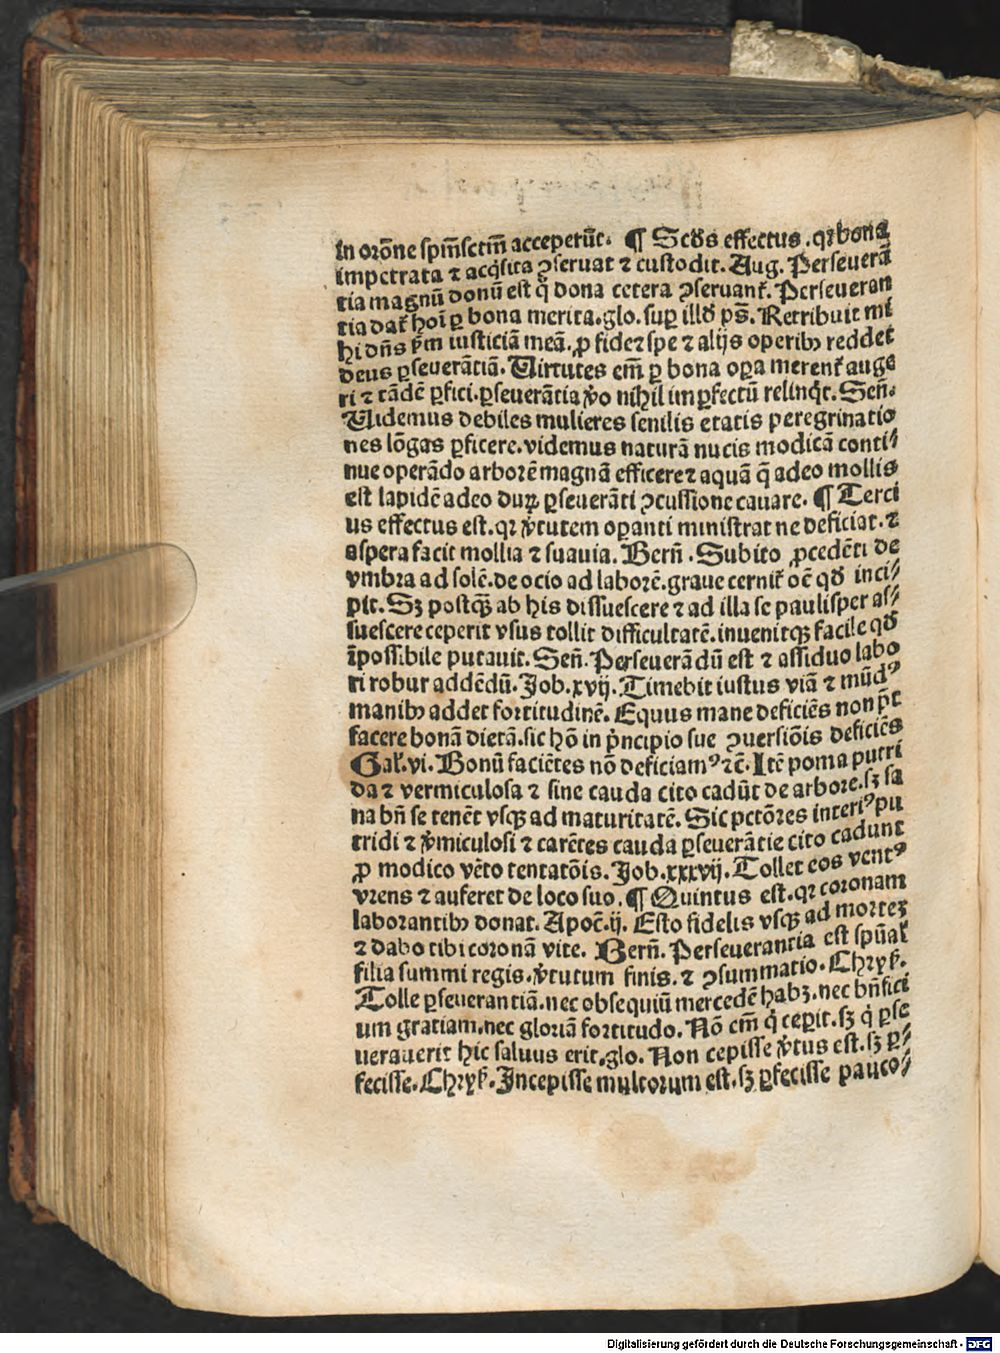 in orōne spm̄sctm̄ acceperūt. ¶ Scd̄s effectus . qꝛ bona
impetrata ⁊ acq̇sita ꝯseruat ⁊ custodit. Aug. Perseuerā
tia magnū donū est q̄ dona cetera ꝯseruant᷑. Perseueran
tia dat᷑ hoı̄ ꝑ bona merita.glo. suꝑ illd̄ ps̄. Retribuit mi
hi dn̄s ẜm iusticiā meā. ꝓ fide⁊spe ⁊ alijs operibꝫ reddet
deus ꝑseuerātiā. Uirtutes em̄ ꝑ bona oꝑa merent᷑ auge
ri ⁊ tādē ꝑfici. ꝑseuerātia v̊o nihil imꝑfectū relinq̇t. Sen̄.
Uidemus debiles mulieres senilis etatis peregrinatio
nes lōgas ꝑficere. videmus naturā nucis modicā conti⸗
nue operādo arborē magnā efficere⁊ aquā q̄ adeo mollis
est lapidē adeo duꝝ ꝑseuerāti ꝯcussione cauare. ¶ Terci
us effectus est. qꝛ v̓tutem oꝑanti ministrat ne deficiat. ⁊
aspera facit mollia ⁊ suauia. Bern̄ . Subito ꝓcedēti de
vmbra ad solē. de ocio ad laborē. graue cernit᷑ oē qd̄ inci⸗
pit. Sꝫ postqꝫ̄ ab his dissuescere ⁊ ad illa se paulisper as⸗
suescere ceperit vsus tollit difficultatē. inuenitqꝫ facile qd̄
īpossibile putauit. Sen̄. Perseuerādū est ⁊ assiduo labo
ri robur addēdū. Job. xvij. Timebit iustus viā ⁊ mūdꝰ
manibꝫ addet fortitudinē. Equus mane deficiēs non p̄t
facere bonā dietā. sic hō in pͥncipio sue ꝯuersiōis deficiēs
Gal᷑. vi. Bonū faciētes nō deficiamꝰ ⁊c̄. Itē poma putri
da ⁊ vermiculosa ⁊ sine cauda cito cadūt de arbore. sꝫ sa
na bn̄ se tenēt vsqꝫ ad maturitatē. Sic pctōres interiꝰ pu
tridi ⁊ v̓miculosi ⁊ carētes cauda ꝑseuerātie cito cadunt
ꝓ modico vēto tentatōis. Job. xxxvij. Tollet eos ventꝰ
vrens ⁊ auferet de loco suo. ¶ Quintus est. qꝛ coronam
laborantibꝫ donat. Apoc̄. ij. Esto fidelis vsqꝫ ad morteꝫ
⁊ dabo tibi coronā vite. Bern̄. Perseuerantia est spūal᷑
filia summi regis. v̓tutum finis. ⁊ ꝯsummatio. Chrys᷑.
Tolle ꝑseuerantiā. nec obsequiū mercedē habꝫ. nec bn̄fici
um gratiam. nec gloriā fortitudo. Nō em̄ q̇ cepit. sꝫ q̇ ꝑse
uerauerit hic saluus erit. glo. Non cepisse v̓tus est. sꝫ ꝑ⸗
fecisse. Chrys᷑. Incepisse multorum est. sꝫ ꝑfecisse pauco⸗
Digitalisierung gefördert durch die Deutsche Forschungsgemeinschaft - DFG